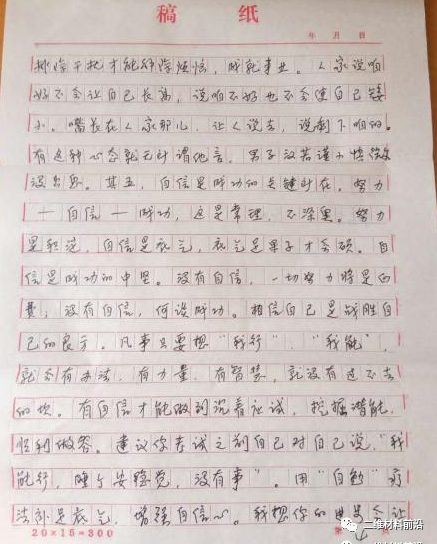 稿 纸
年 月 日
排除干扰才能解除烦恼，成就事业。人家说咱
好不会让自己长高，说咱不好也不会使自己矮
小。嘴长在人家那儿，让人说去，说剩下咱的。
有这种心态就无计谓他言。男子汉若谨小慎微
没出息。其五，自信是成功的关键所在。努力
—自信—成功，这是常理，不深奥。努力
是积淀，自信是底气，底气是果子才会硕。自
信是成功的中坚。没有自信，一切努力将是白
费，没有自信，何谈成功。相信自己是战胜自
己的良方。凡事只要想“我行”，“我能”，
就会有办法，有力量，有智慧，就没有过不去
的坎。有自信才能做到沉着应试，挖掘潜能，
胜利做答。建议你考试之前自己对自己说“我
能行，睡个安稳觉，没有事”。用“自勉”疗
法补足底气，增强自信心。我想你的
会让
20×15=300
第
二维材料前沿